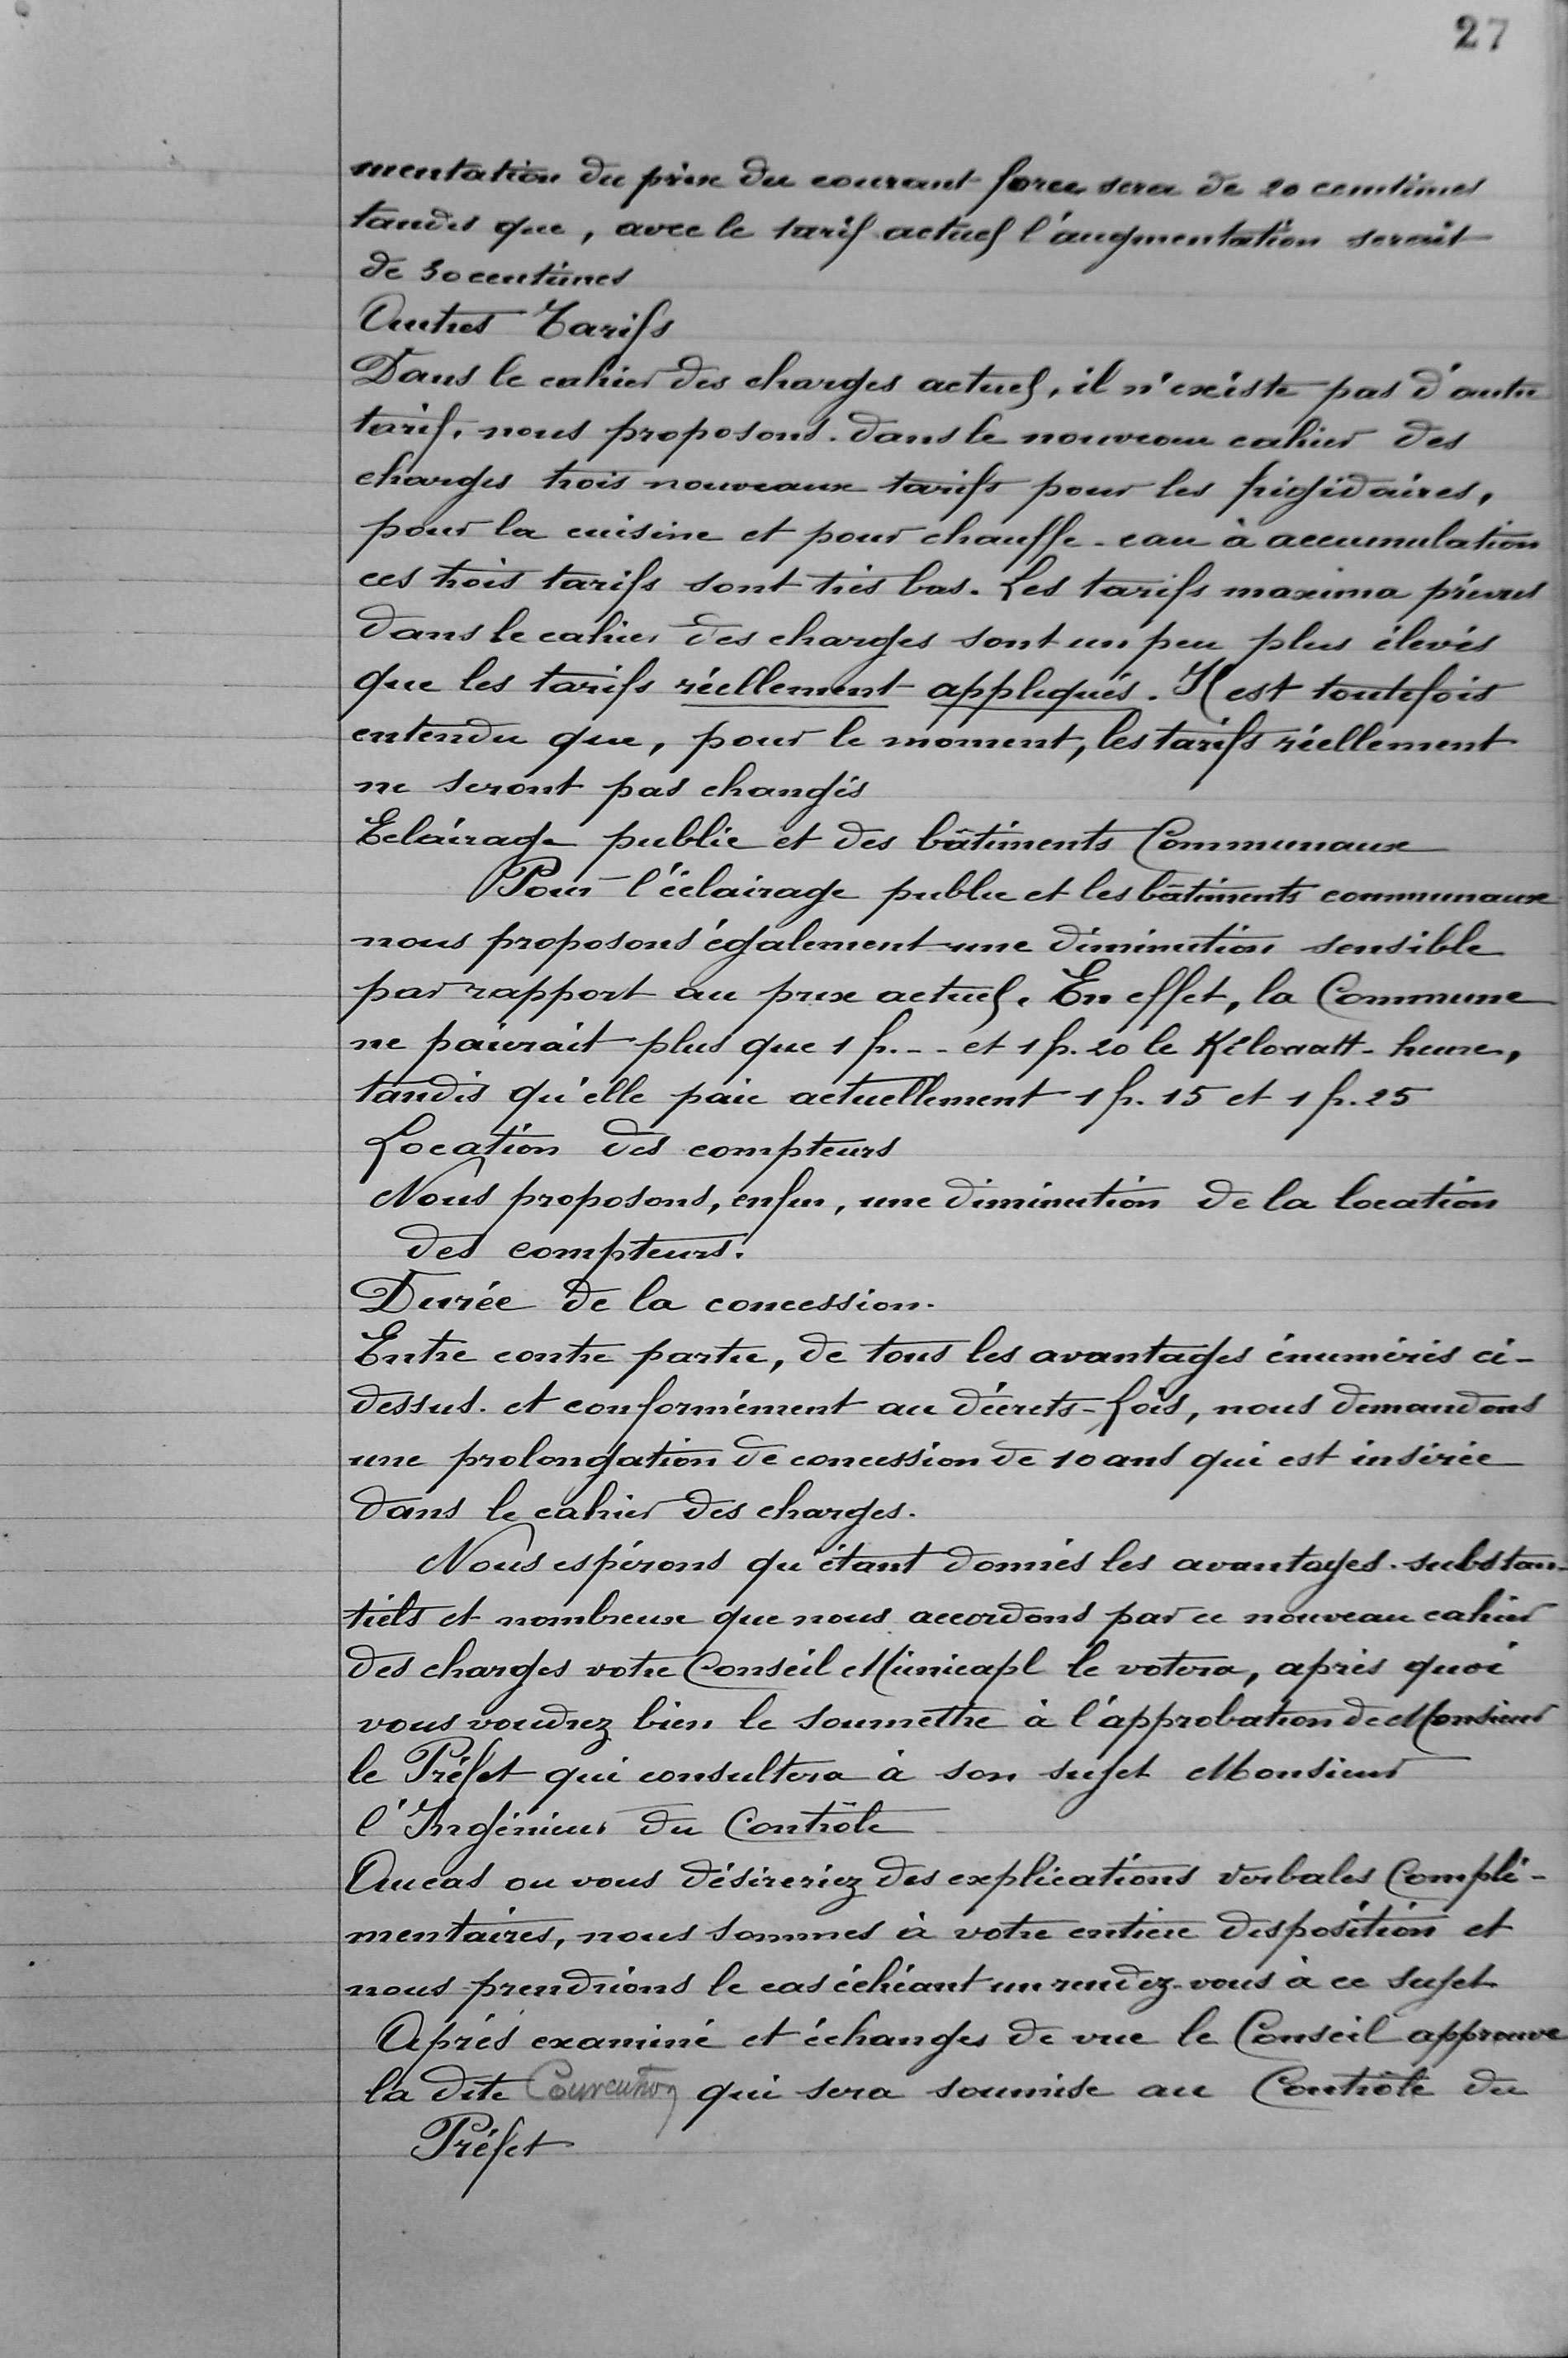 27
mentation du prix du courant force sera de 20 centimes
tandis que, avec le tarif actuel l'augmentation serait
de 30 centimes
Autres Tarifs
Dans le cahier des charges actuel, il n'existe pas d'autre
tarif. nous proposons. dans le nouveau cahier des
charges trois nouveaux tarifs pour les frigidaires,
pour la cuisine et pour chauffe-eau à accumulation
ces trois tarifs sont très bas. Les tarifs maxima prévus
dans le cahier des charges sont un peu plus élevés
que les tarifs réellement appliqués. Il est toutefois
entendu que, pour le moment, les tarifs réellement
ne seront pas changés
Eclairage public et des bâtiments Communaux
Pour l'éclairage public et les bâtiments communaux
nous proposons également une diminution sensible
par rapport au prix actuel. En effet, la Commune
ne paierait plus que 1 fr. -- et 1 fr. 20 le Kilowatt-heure,
tandis qu'elle paie actuellement 1 fr. 15 et 1 fr. 25
Location des compteurs
Nous proposons, enfin, une diminution de la location
des compteurs.
Durée de la concession.
Entre contre partie, de tous les avantages énumérés ci-
dessus. et conformément au décrets-lois, nous demandons
une prolongation de concession de 10 ans qui est insérée
dans le cahier des charges.
Nous espérons qu'étant donnés les avantages. substan-
tiels et nombreux que nous accordons par ce nouveau cahier
des charges votre Conseil Municapl le votera, après quoi
vous voudrez bien le soumettre à l'approbation de Monsieur
le Préfet qui consultera à son sujet Monsieur
l'Ingénieur du Contrôle
Au cas ou vous désireriez des explications verbales Complé-
mentaires, nous sommes à votre entière disposition et
nous prendrions le cas échéant un rendez-vous à ce sujet
Après examiné et échanges de vue le Conseil approuve
la dite qui sera soumise au Contrôle du
Préfet